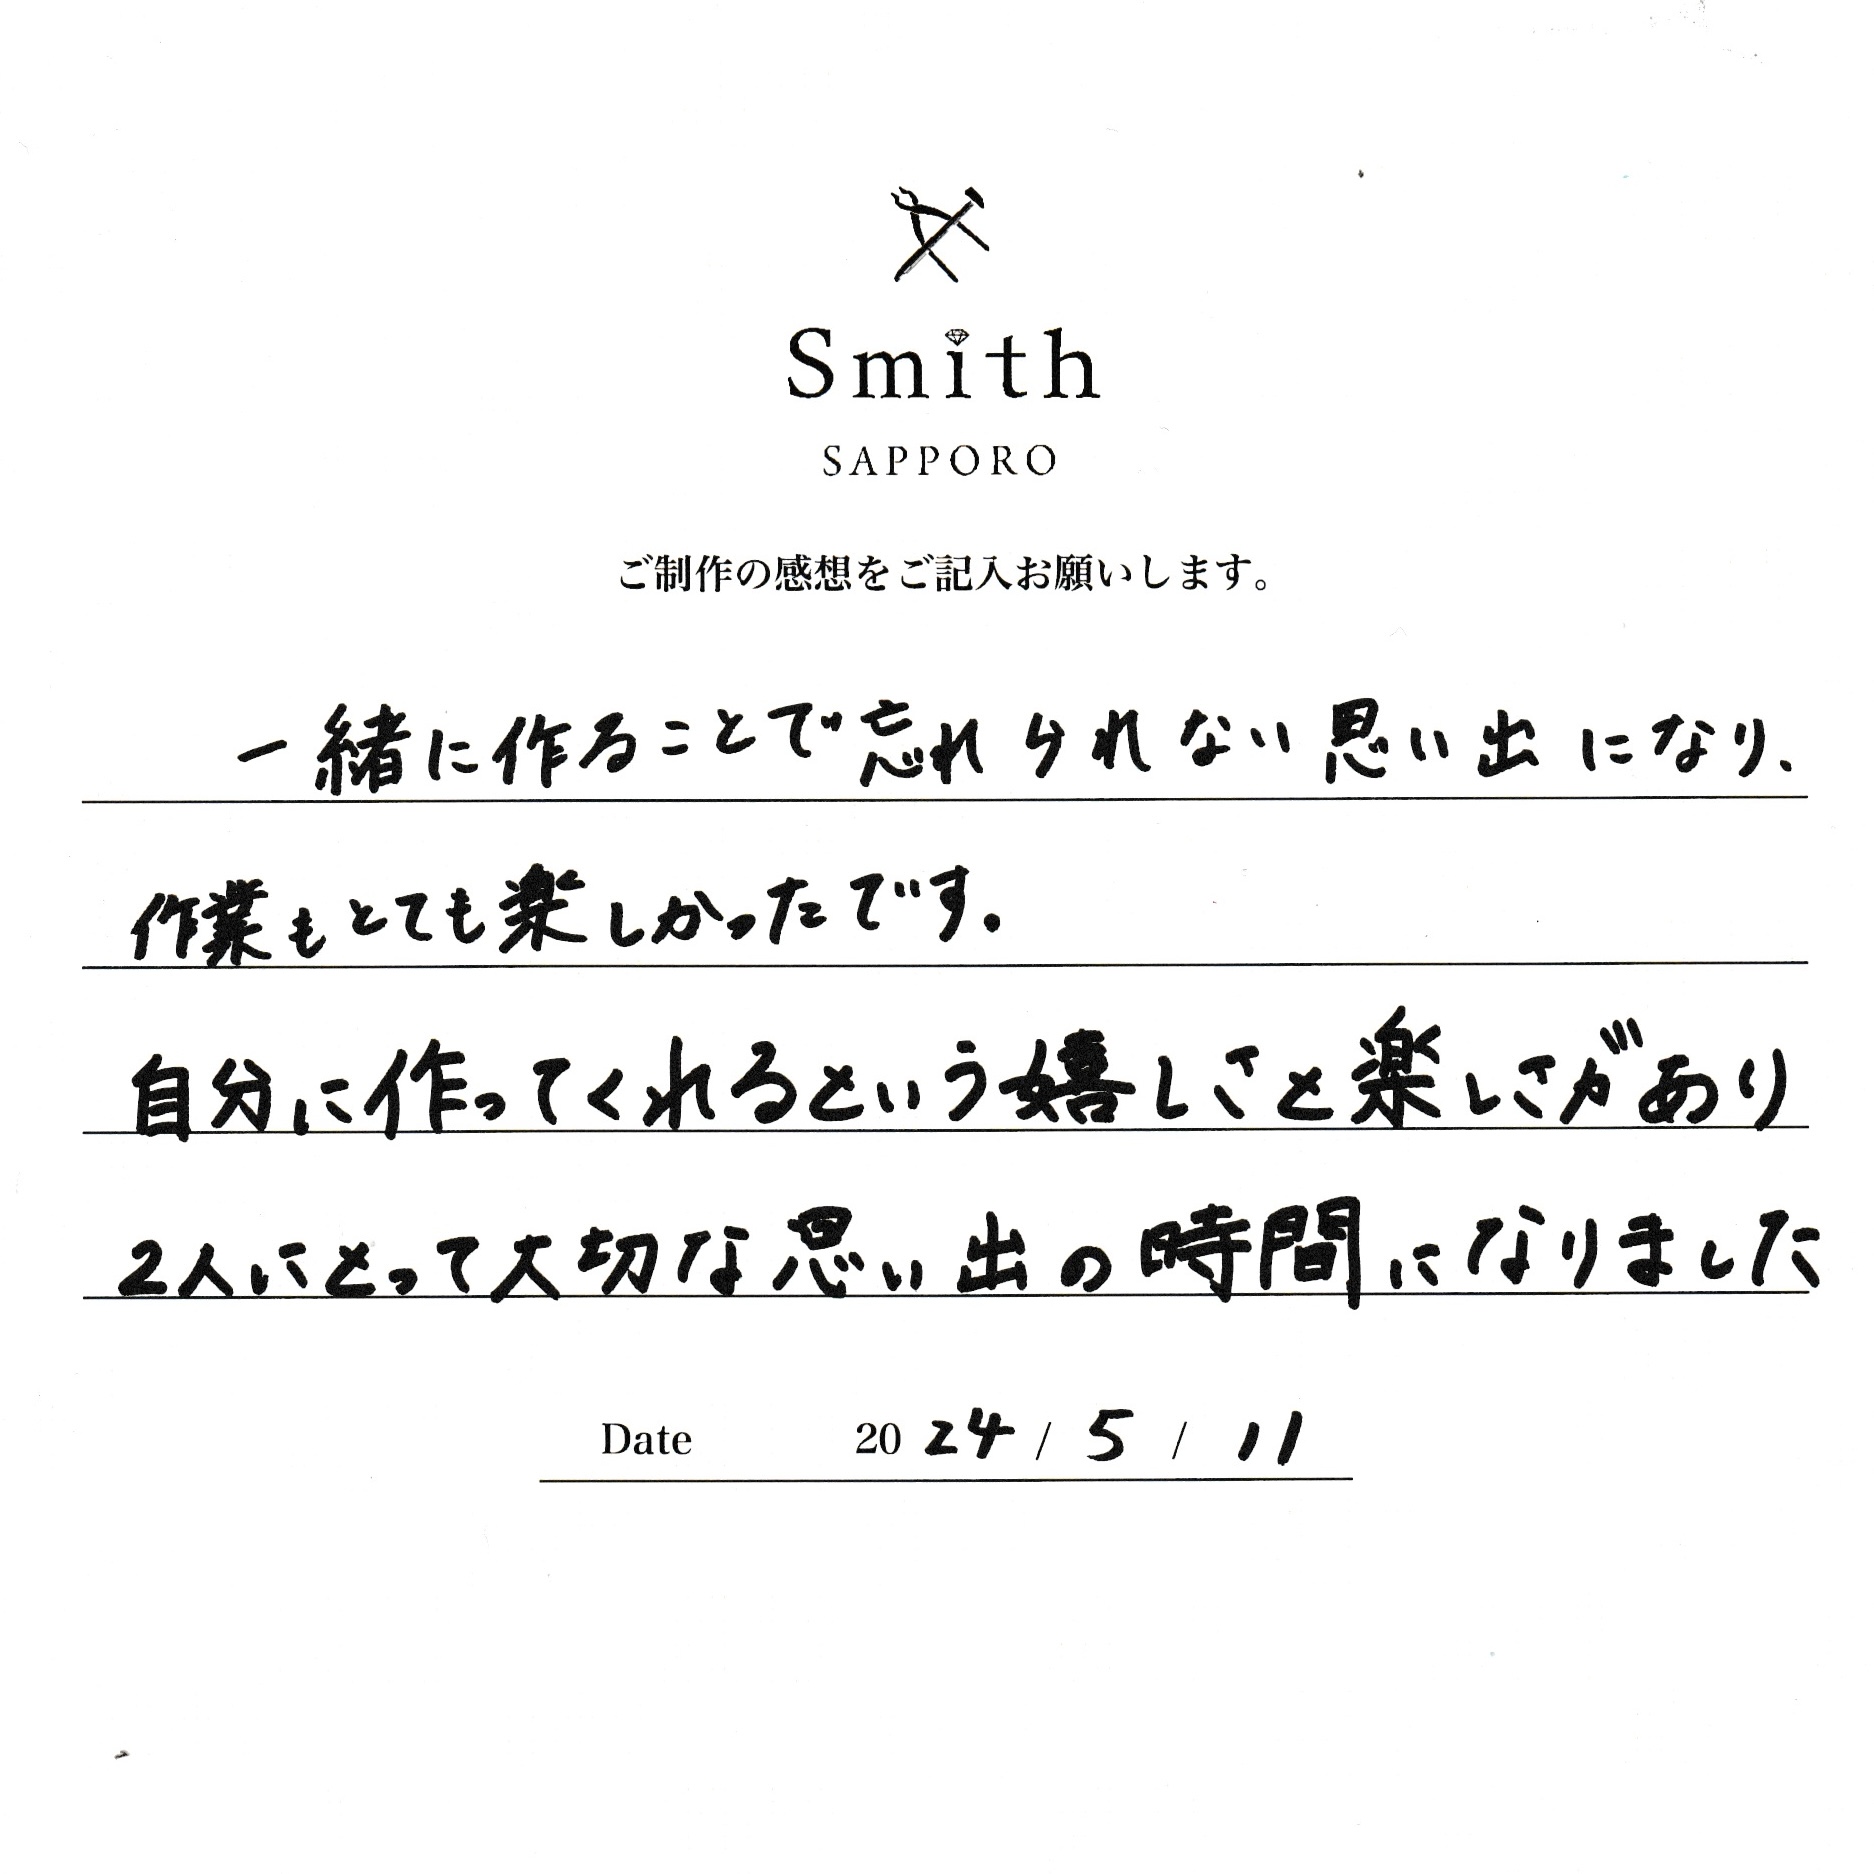 Smith
SAPPORO
ご制作の感想をご記入お願いします。
一緒に作ることで忘れられない思い出になり、
作業もとても楽しかったです。
自分に作ってくれるという嬉しさと楽しさがあり
2人にとって大切な思い出の時間になりました
Date 2024/5/11